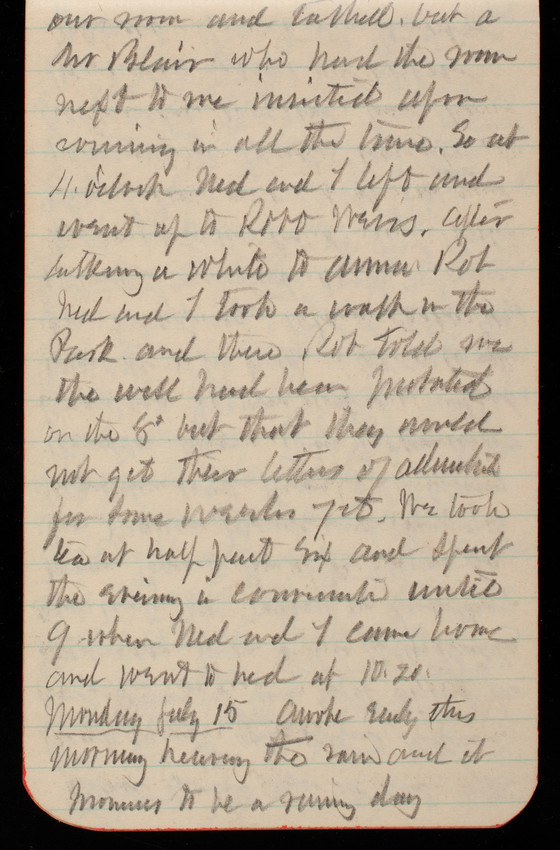 our room and talked. but a
Mr Blair who had the room
next to me insisted upon
coming in all the time. So at
4. oclock Ned and I left and
went up to Robt Weirs. After
talking a while to Anna Rob
Ned and I took a walk in the
Park and there Rob told me
the will had been probated
on the 8th but that they would
not get their letters of
for some weeks yet. We took
tea at half past six and spent
the evening in until
9 when Ned and I came home
and went to bed at 10.20.
Monday July 15 Awoke early this
morning hearing the rain and it
promises to be a rainy day